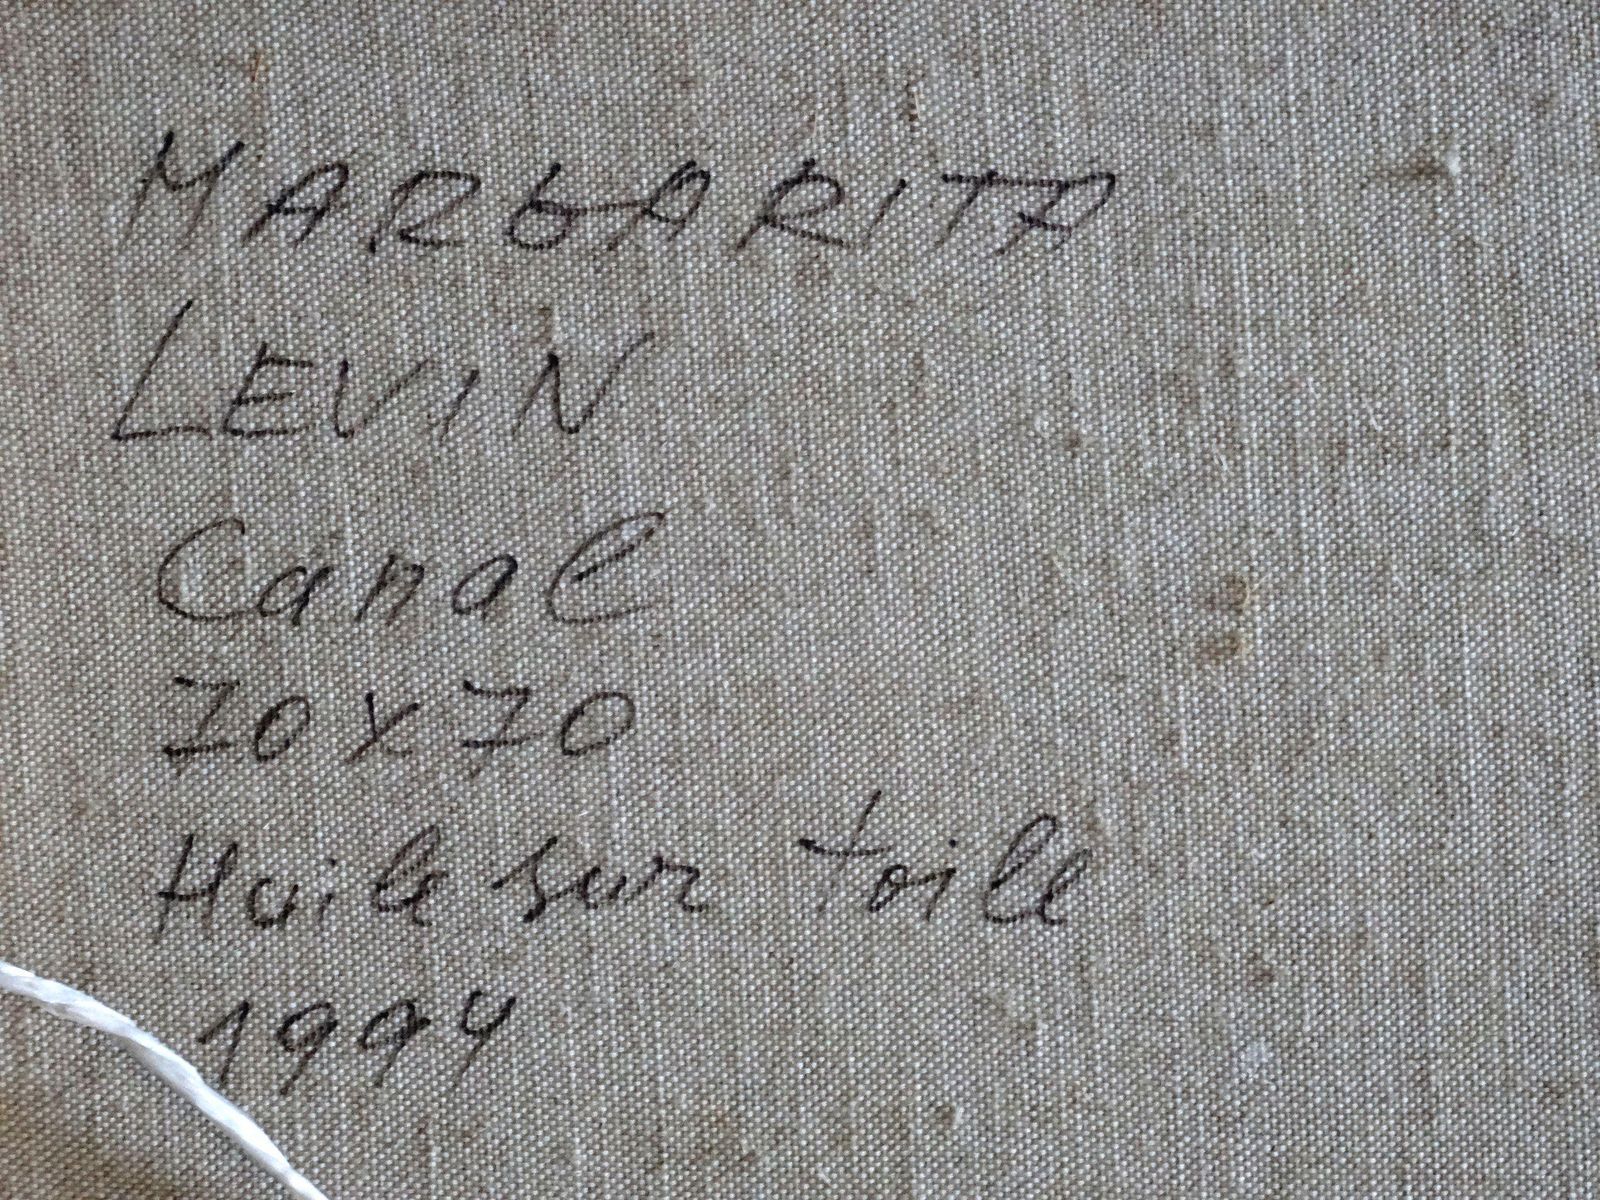 MARGARITA
LEVIN
Canal
70 x 70
Huile sur toile
1994